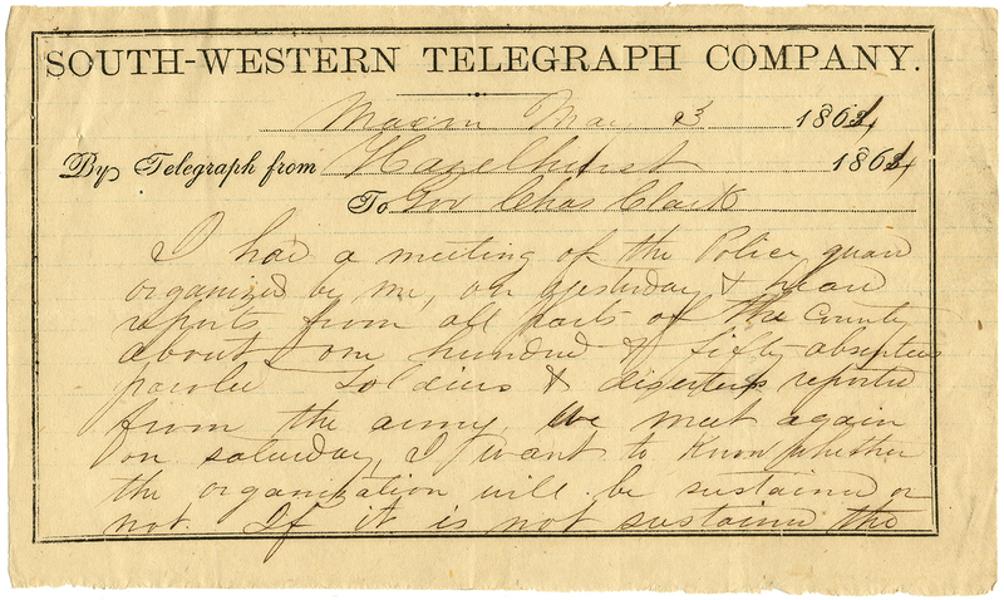 SOUTH-WESTERN TELEGRAPH COMPANY.
Macon Mar 3 1864
By Telegraph from Hazelhurst 1864
To Gov Chas Clark
I had a meeting of the Police guard
organized by me, on yesterday & heard
reports from all parts of the County
about one hundred & fifty absentees
parole soldiers & deserters reported
from the army. We meet again
on saturday, I want to Know whether
the organization will be sustained or
not. If it is not sustained the